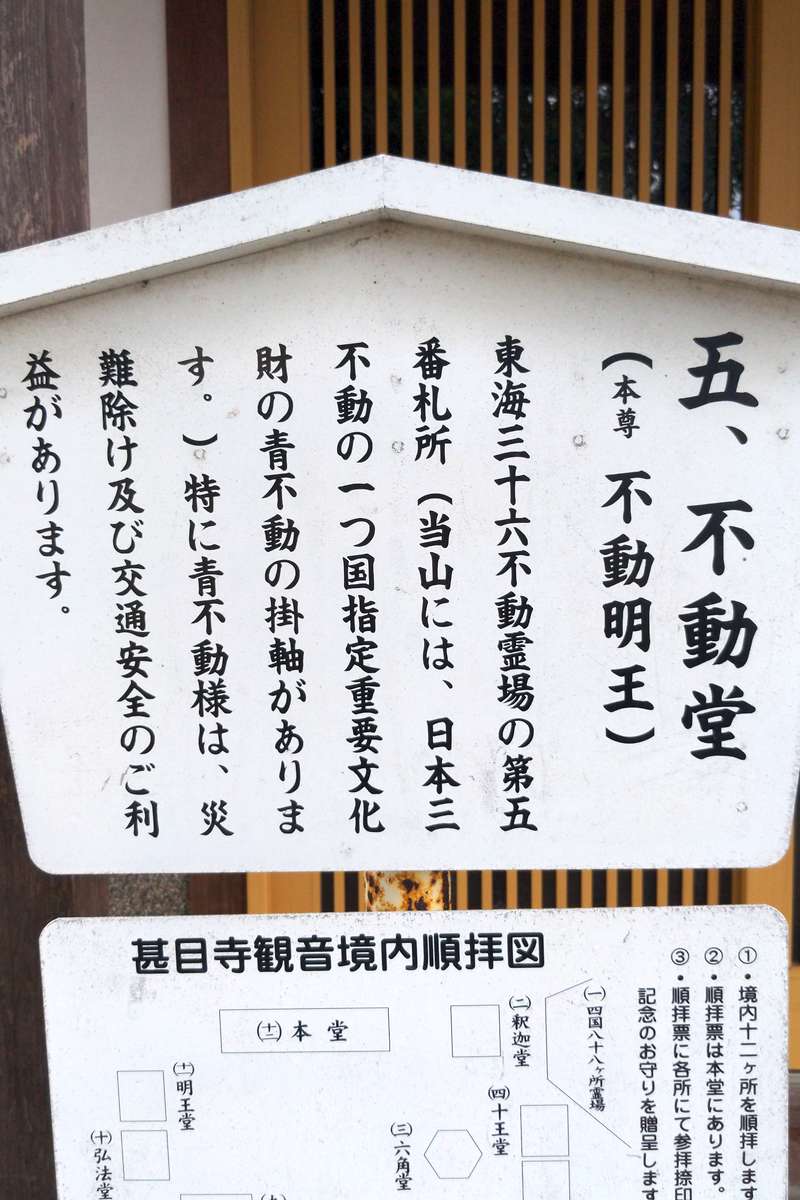 五、不動堂
（本尊 不動明王）
東海三十六不動霊場の第五
番札所（当山には、日本三
不動の一つ国指定重要文化
財の青不動の掛軸がありま
す。）特に青不動様は、災
難除け及び交通安全のご利
益があります。
甚目寺観音境内順拝図
①・境内十二ヶ所を順拝します
②・順拝票は本堂にあります。
③・順拝票に各所にて参拝捺印
記念のお守りを贈呈します
㈠四国八十八ヶ所霊場
㈡釈迦堂
㈣十王堂
㈢六角堂
(十二)本堂
(十一)明王堂
㈩弘法堂